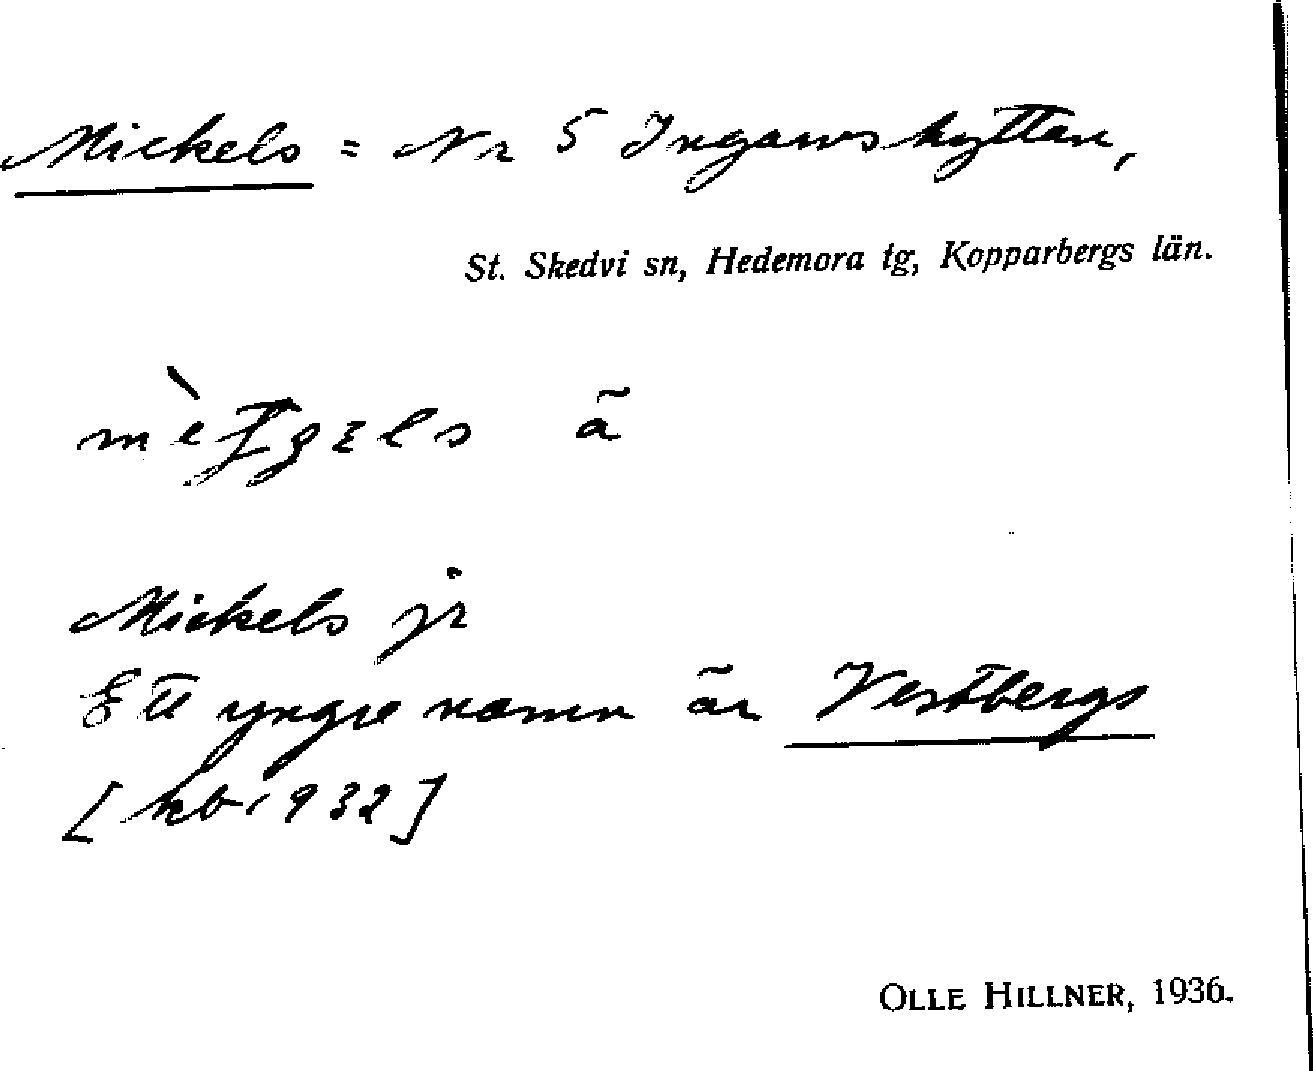 Mickels = Nr 5 Ingarvshyttan,
St. Skedvi sn, Hedemora tg, Kopparbergs län.
ä
Mickels jr
Ett yngre namn är Vestbergs
[kb 1932]
OLLE HILLNER, 1936.